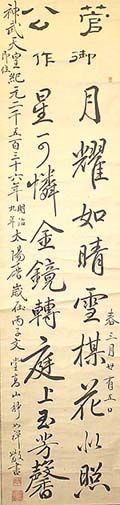 菅公
御作
月耀如晴雪楳花似照
星可憐金鏡轉庭上玉芳馨
春三月廿有五日
神武天皇即位紀元二千五百三十六年明治九年太陽暦歳在丙子
書